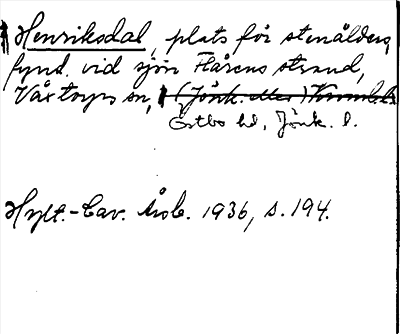 Henriksdal, plats för stenålders
fynd vid sjön Flårens strand,
Våxtorps sn, (Jönk. eller) Kronob. l.
Östbo hd, Jönk. l.
Hylt.-Cav. Årsb. 1936, s. 194.